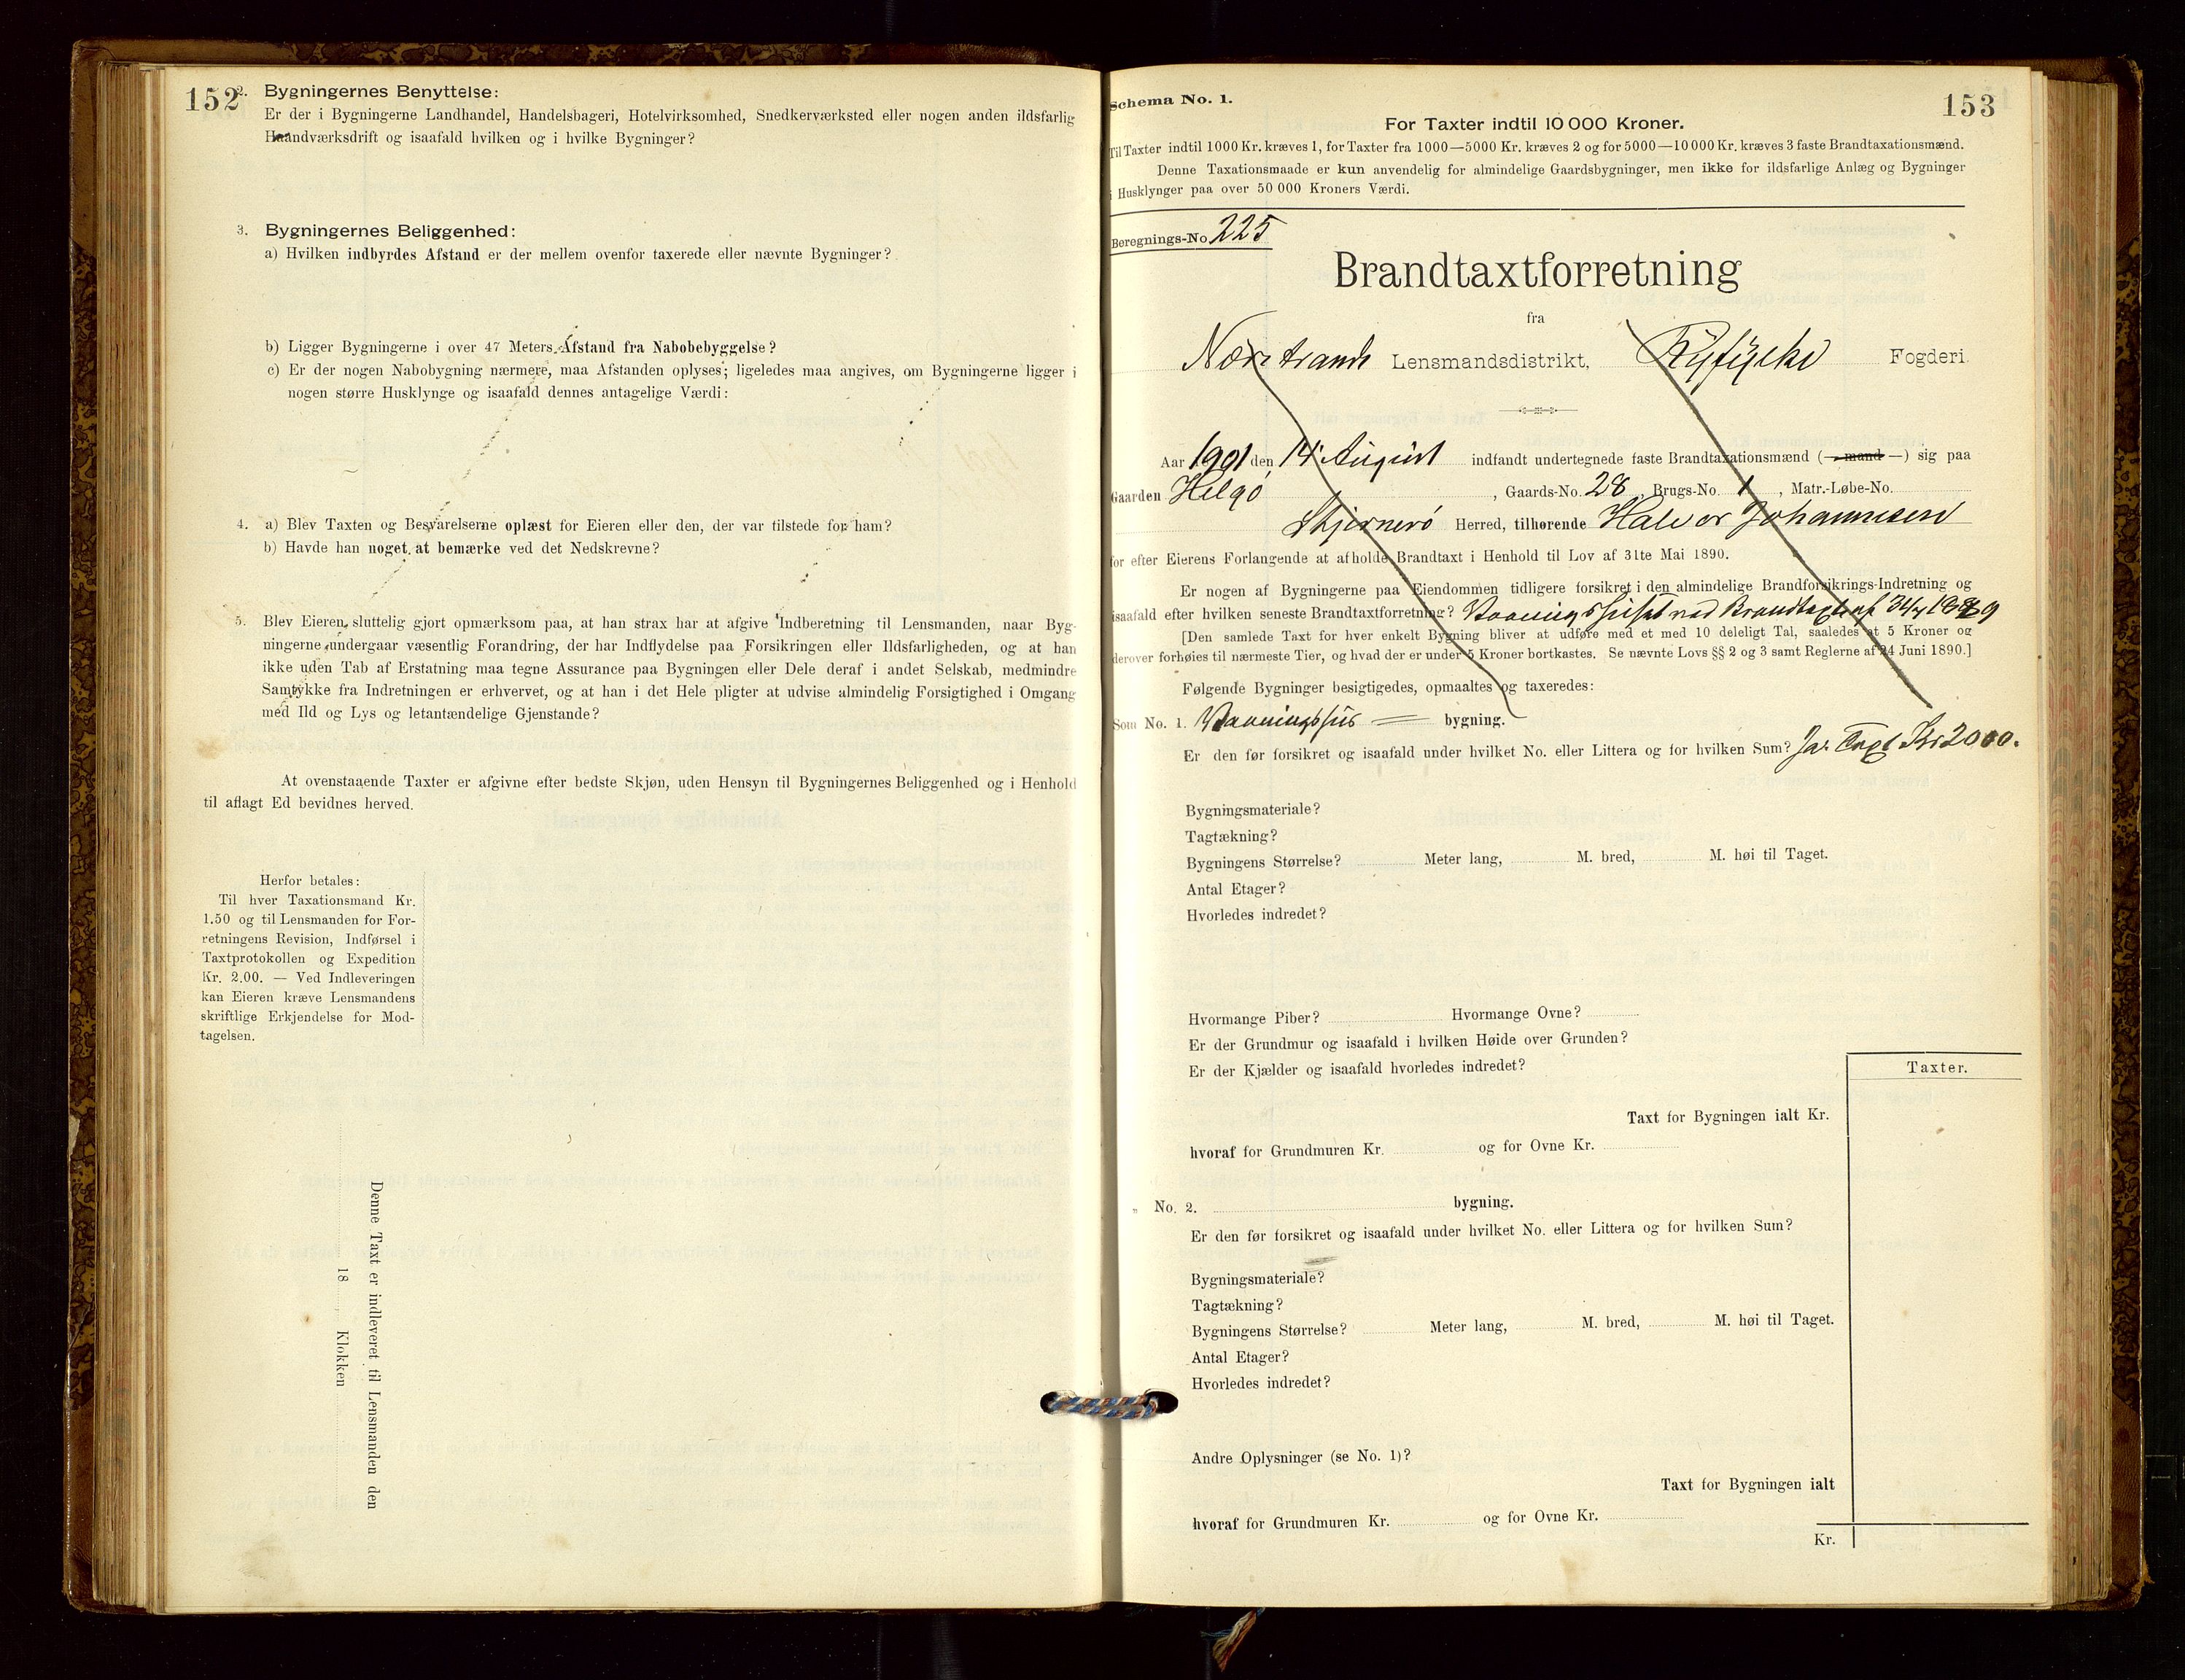 152
2. Bygningernes Benyttelse:
Er der i Bygningerne Landhandel, Handelsbageri, Hotelvirksomhed, Snedkerværksted eller nogen anden ildsfarlig
Haandværksdrift og isaafald hvilken og i hvilke Bygninger?
3. Bygningernes Beliggenhed:
a) Hvilken indbyrdes Afstand er der mellem ovenfor taxerede eller nævnte Bygninger?
b) Ligger Bygningerne i over 47 Meters Afstand fra Nabobebyggelse?
c) Er der nogen Nabobygning nærmere, maa Afstanden oplyses; ligeledes maa angives, om Bygningerne ligger i
nogen større Husklynge og isaafald dennes antagelige Værdi:
4. a) Blev Taxten og Besvarelserne oplæst for Eieren eller den, der var tilstede for ham?
b) Havde han noget at bemærke ved det Nedskrevne?
5. Blev Eieren sluttelig gjort opmærksom paa, at han strax har at afgive Indberetning til Lensmanden, naar Byg-
ningerne undergaar væsentlig Forandring, der har Indflydelse paa Forsikringen eller Ildsfarligheden, og at han
ikke uden Tab af Erstatning maa tegne Assurance paa Bygningen eller Dele deraf i andet Selskab, medmindre
Samtykke fra Indretningen er erhvervet, og at han i det Hele pligter at udvise almindelig Forsigtighed i Omgang
med Ild og Lys og letantændelige Gjenstande?
At ovenstaaende Taxter er afgivne efter bedste Skjøn, uden Hensyn til Bygningernes Beliggenhed og i Henhold
til aflagt Ed bevidnes herved.
Herfor betales:
Til hver Taxationsmand Kr.
1.50 og til Lensmanden for For-
retningens Revision, Indførsel i
Taxtprotokollen og Expedition
Kr. 2.00. — Ved Indleveringen
kan Eieren kræve Lensmandens
skriftlige Erkjendelse for Mod-
tagelsen.
Denne Taxt er indleveret til Lensmanden den
18 , Klokken
Schema No. 1.
153
For Taxter indtil 10 000 Kroner.
Til Taxter indtil 1000 Kr. kræves 1, for Taxter fra 1000—5000 Kr. kræves 2 og for 5000—10 000 Kr. kræves 3 faste Brandtaxationsmænd.
Denne Taxationsmaade er kun anvendelig for almindelige Gaardsbygninger, men ikke for ildsfarlige Anlæg og Bygninger
i Husklynger paa over 50 000 Kroners Værdi.
Beregnings-No 225
Brandtaxtforretning
fra
Nærstrands Lensmandsdistrikt, Ryfylke Fogderi.
Aar 1901 den 14 August indfandt undertegnede faste Brandtaxationsmænd (— mand —) sig paa
Gaarden Helgø , Gaards-No. 28, Brugs-No. 1 , Matr.-Løbe-No.
Skjernerø Herred, tilhørende Halvor Johannesen
for efter Eierens Forlangende at afholde Brandtaxt i Henhold til Lov af 31te Mai 1890.
Er nogen af Bygningerne paa Eiendommen tidligere forsikret i den almindelige Brandforsikrings-Indretning og
isaafald efter hvilken seneste Brandtaxtforretning? Vaaningshuset ved Brandtaxt af
[Den samlede Taxt for hver enkelt Bygning bliver at udføre med et med 10 deleligt Tal, saaledes at 5 Kroner og
derover forhøies til nærmeste Tier, og hvad der er under 5 Kroner bortkastes. Se nævnte Lovs §§ 2 og 3 samt Reglerne af 24 Juni 1890.]
Følgende Bygninger besigtigedes, opmaaltes og taxeredes:
Som No. 1. Vaaningshus bygning.
Er den før forsikret og isaafald under hvilket No. eller Littera og for hvilken Sum? Ja. Taxt Kr 2000.
Bygningsmateriale?
Tagtækning?
Bygningens Størrelse? Meter lang, M. bred, M. høi til Taget.
Antal Etager?
Hvorledes indredet?
Hvormange Piber? Hvormange Ovne?
Er der Grundmur og isaafald i hvilken Høide over Grunden?
Er der Kjælder og isaafald hvorledes indredet?
Taxter.
Taxt for Bygningen ialt Kr.
hvoraf for Grundmuren Kr. og for Ovne Kr.
" No. 2. bygning.
Er den før forsikret og isaafald under hvilket No. eller Littera og for hvilken Sum?
Bygningsmateriale?
Tagtækning?
Bygningens Størrelse? Meter lang, M. bred, M. høi til Taget.
Antal Etager?
Hvorledes indredet?
Andre Oplysninger (se No. 1)?
Taxt for Bygningen ialt
hvoraf for Grundmuren Kr. og for Ovne Kr.
Kr.